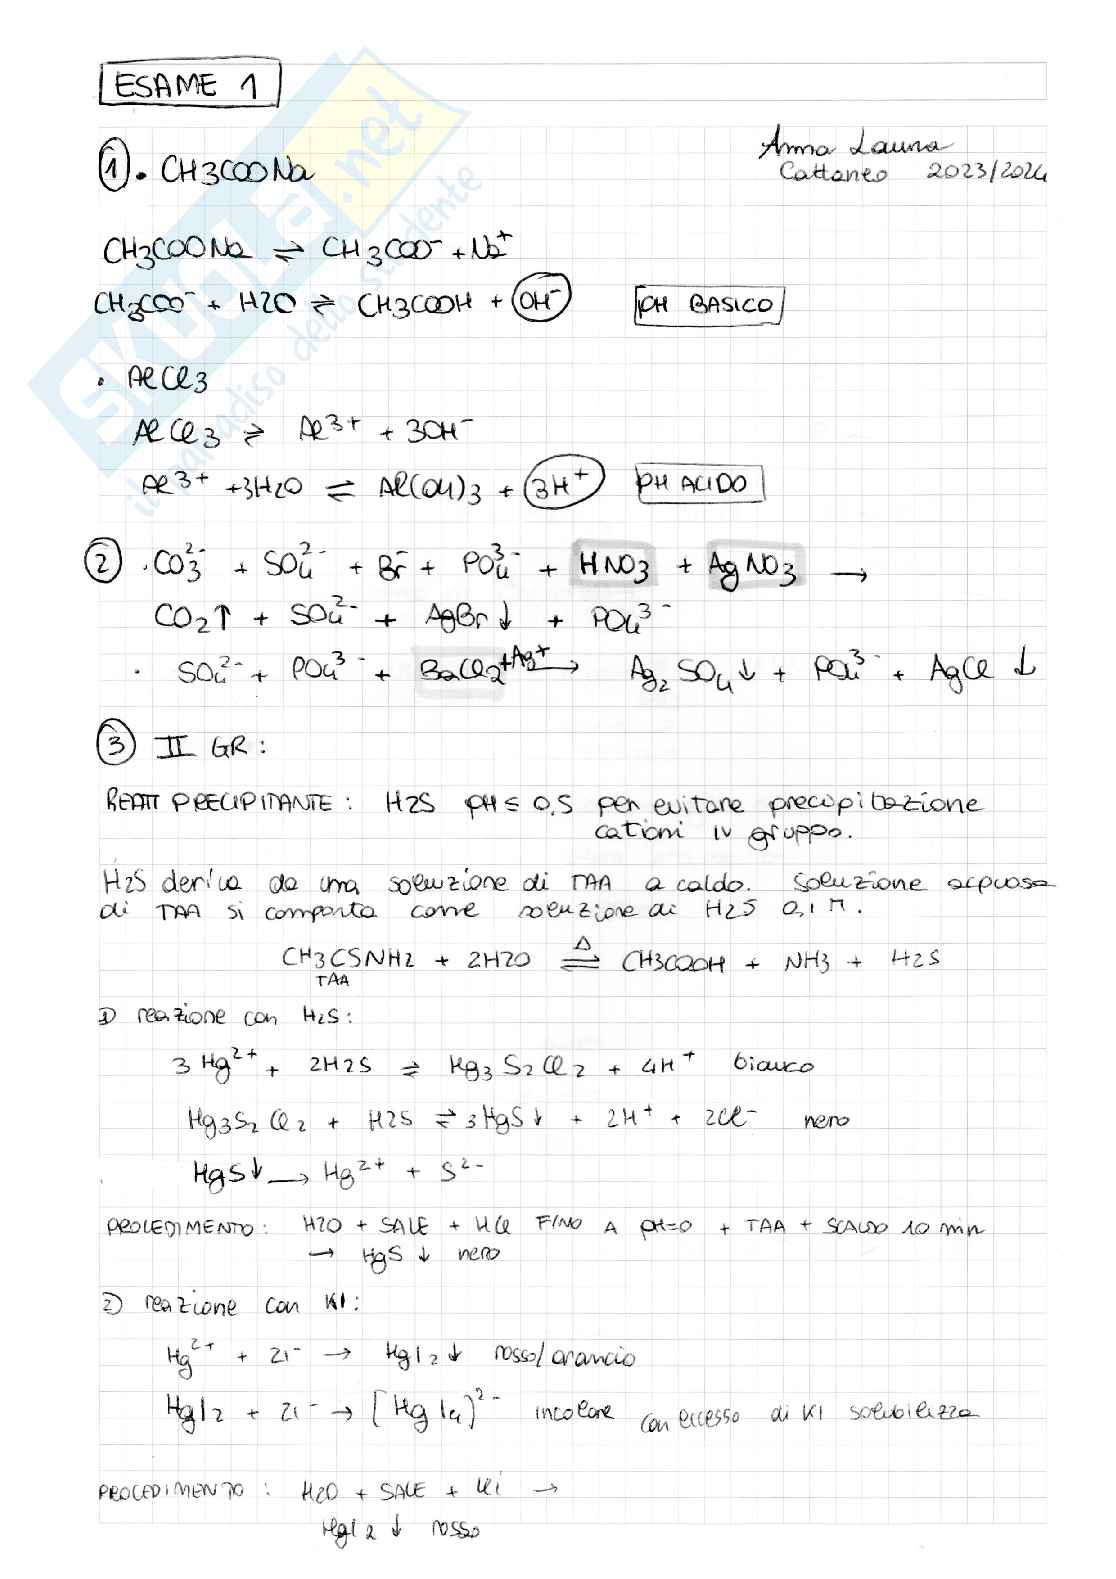 ESAME 1
Anna Laura
Cattaneo 2023/2024
① • CH3COONa
CH3COONa ⇌ CH3COO⁻ + Na⁺
CH3COO⁻ + H2O ⇌ CH3COOH + OH⁻ PH BASICO
• AlCl3
AlCl3 ⇌ Al³⁺ + 3OH⁻
Al³⁺ + 3H2O ⇌ Al(OH)3 + 3H⁺ PH ACIDO
② • CO₃²⁻ + SO₄²⁻ + Br⁻ + PO₄³⁻ + HNO3 + AgNO3 →
CO2↑ + SO₄²⁻ + AgBr↓ + PO₄³⁻
• SO₄²⁻ + PO₄³⁻ + BaCl2 + Ag⁺ → Ag₂SO₄↓ + PO₄³⁻ + AgCl↓
③ II GR:
REATT PRECIPITANTE: H2S pH ≤ 0,5 per evitare precipitazione
cationi IV gruppo.
H2S deriva da una soluzione di TAA a caldo. Soluzione acquosa
di TAA si comporta come soluzione di H2S 0,1 M.
CH3CSNH2 + 2H2O ⇌ CH3COOH + NH3 + H2S
Δ
TAA
1) reazione con H2S:
3 Hg²⁺ + 2H2S ⇌ Hg₃S₂Cl₂ + 4H⁺ bianco
Hg3S₂Cl₂ + H2S ⇌ 3HgS↓ + 2H⁺ + 2Cl⁻ nero
HgS↓ → Hg²⁺ + S²⁻
PROCEDIMENTO: H2O + SALE + HCl FINO A pH=0 + TAA + SCALDO 10 min
→ HgS ↓ nero
2) reazione con KI:
Hg²⁺ + 2I⁻ → HgI2↓ rosso/arancio
HgI2 + 2I⁻ → [HgI₄]²⁻ incolore con eccesso di KI solubilizza
PROCEDIMENTO: H2O + SALE + KI →
HgI2 ↓ rosso
SKUOLA.net
il paradiso dello studente